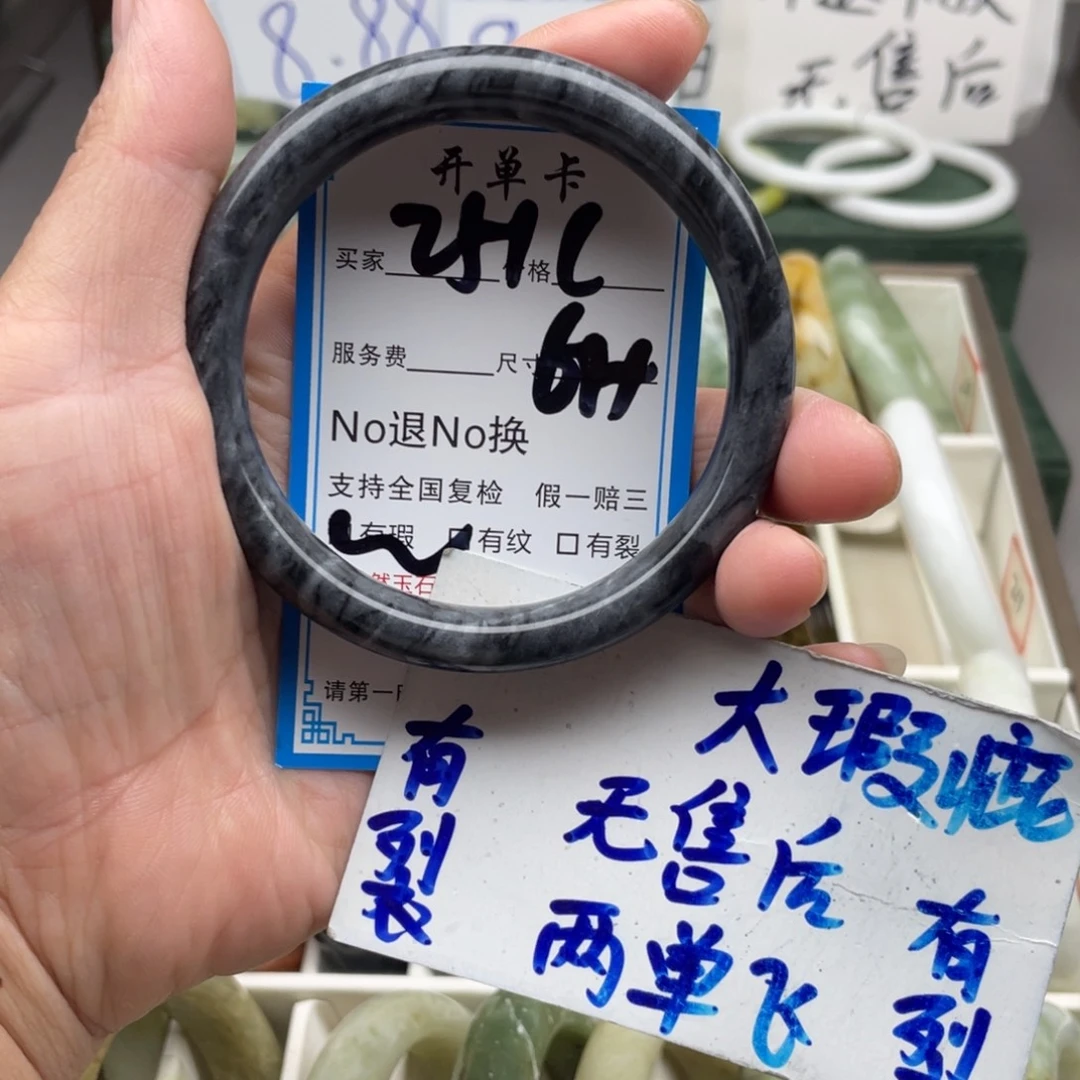 8.88
无售后
开单卡
买家 格
服务费 尺寸
6H
No退No换
支持全国复检 假一赔三
有瑕 口有纹 口有裂
然玉石
请第一
有裂
大瑕疵
无售后
两单飞
有裂